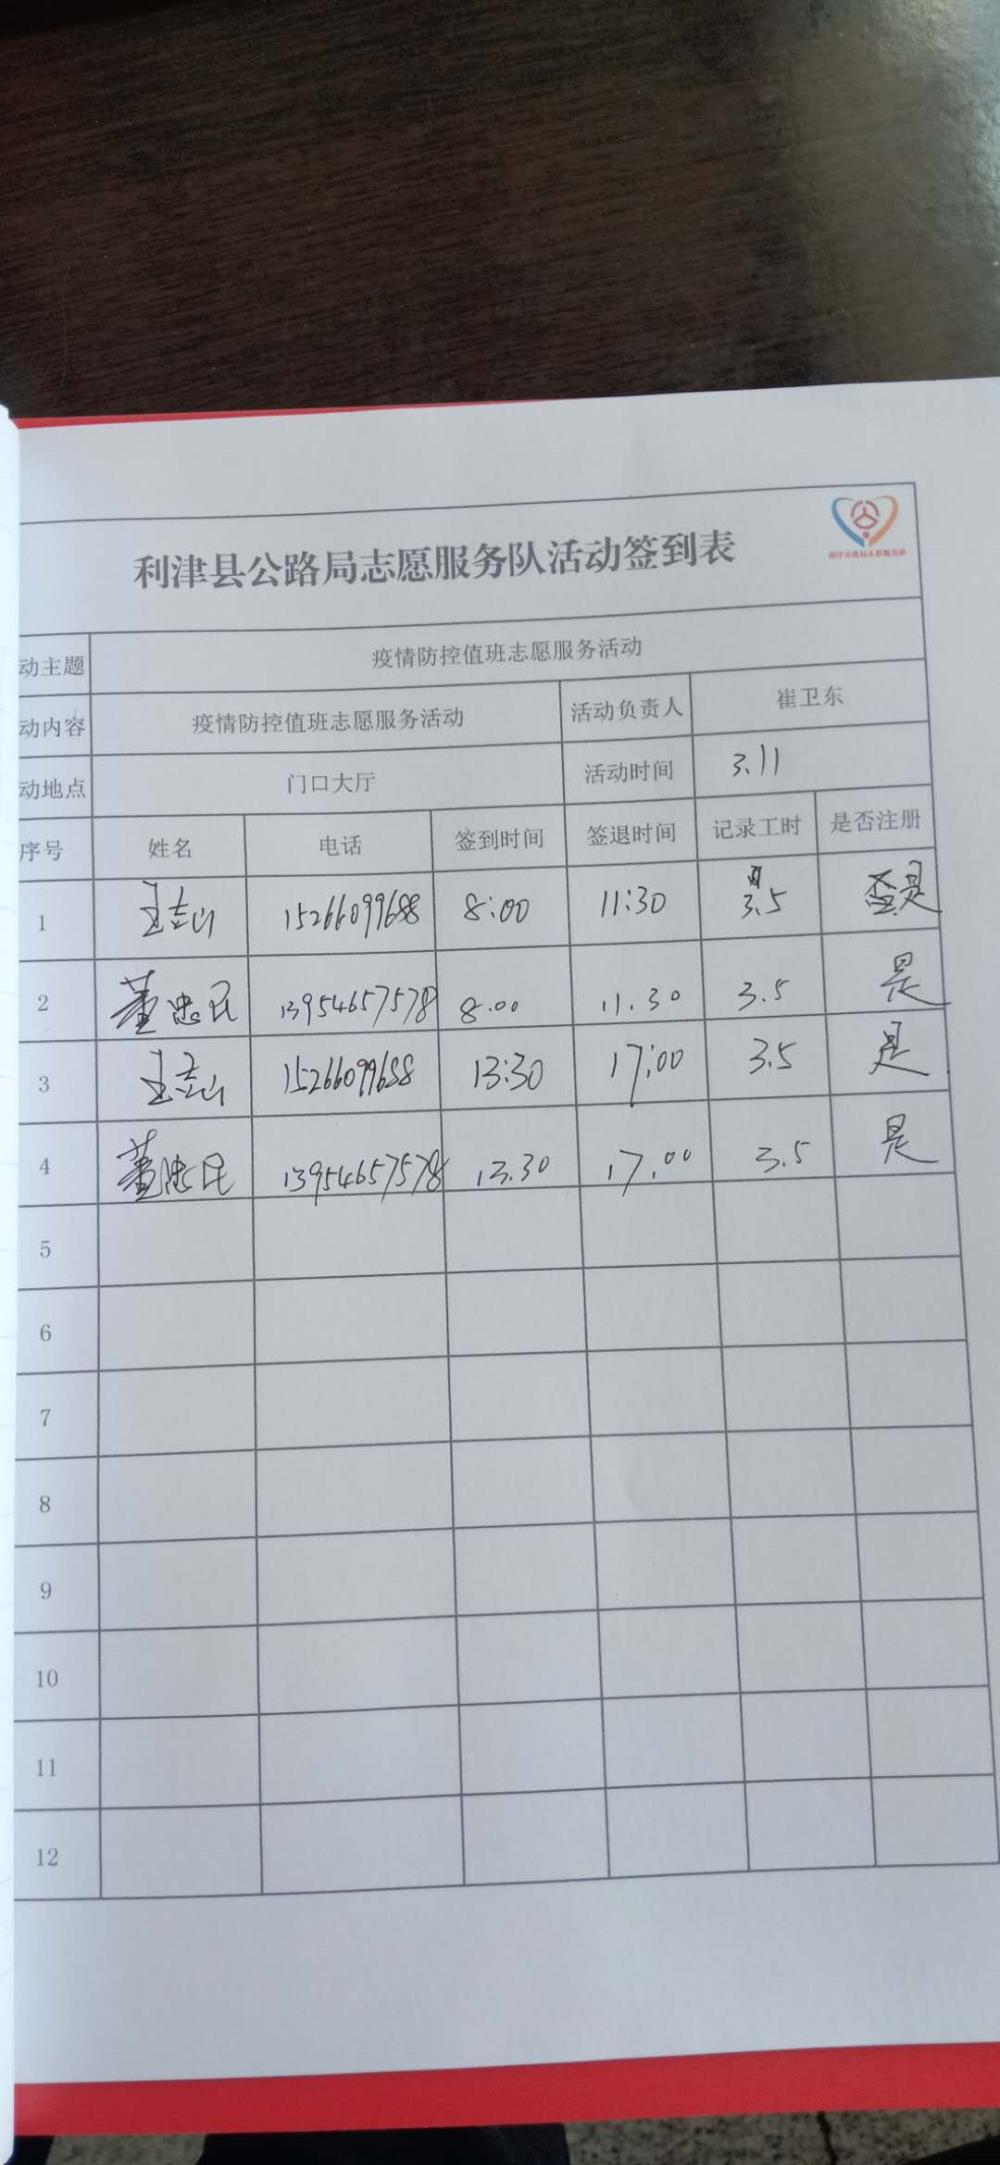 利津县公路局志愿服务队活动签到表
动主题 疫情防控值班志愿服务活动
动内容 疫情防控值班志愿服务活动 活动负责人 崔卫东
动地点 门口大厅 活动时间 3.11
序号 姓名 电话 签到时间 签退时间 记录工时 是否注册
1 王志山 15266099688 8:00 11:30 3.5 是
2 董忠民 13954657578 8.00 11.30 3.5 是
3 王志山 15266099688 13:30 17:00 3.5 是
4 董忠民 13954657578 13.30 17.00 3.5 是
5
6
7
8
9
10
11
12